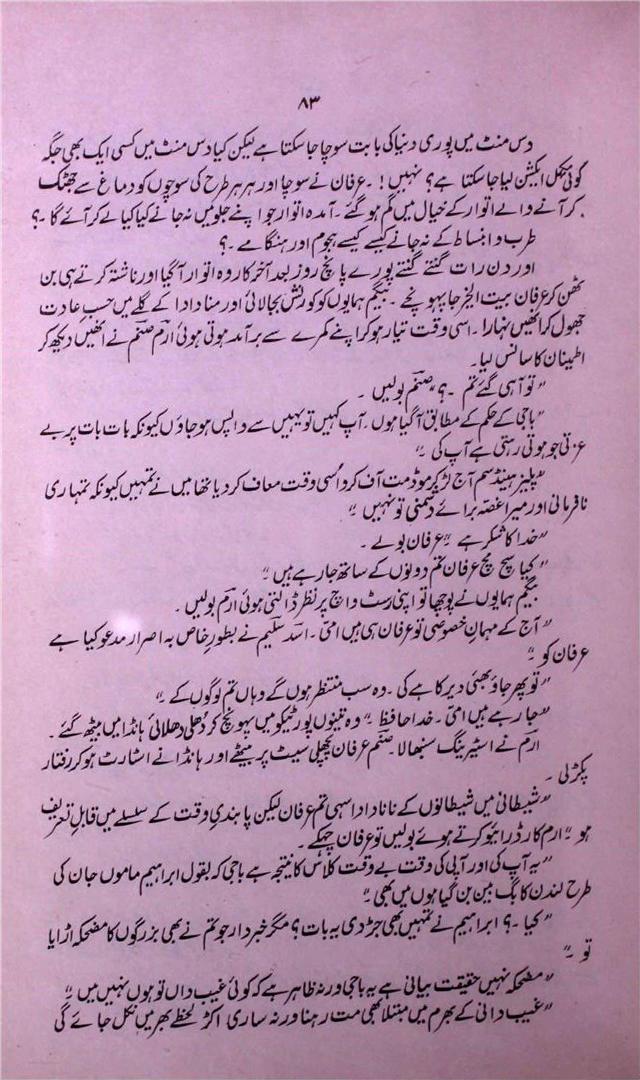 ۸۳
دس منٹ میں پوری دنیا کی بابت سوچا جا سکتا ہے لیکن کیا دس منٹ میں کسی ایک بھی جگہ
کوئی عملی ایکشن لیا جا سکتا ہے؟ نہیں! ۔ عرفان نے سوچا اور ہر ہر طرح کی سوچوں کو دماغ سے جھٹک
کر آنے والے اتوار کے خیال میں گم ہو گئے ۔ آمدہ اتوار جو اپنے جلو میں نہ جانے کیا کیا لے کر آئے گا ۔؟
طرب و انبساط کے نہ جانے کیسے کیسے ہجوم اور ہنگامے ۔؟
اور دن رات گنتے گنتے پورے پانچ روز بعد آخر کار وہ اتوار آ گیا اور ناشتہ کرتے ہی بن
ٹھن کر عرفان بیت الخیر جا پہونچے ۔ بیگم ہمایوں کو کورنش بجا لائی اور منا دادا کے گلے میں حسب عادت
جھول کر انھیں نہارا ۔ اسی وقت تیار ہو کر اپنے کمرے سے برآمد ہوتی ہوئی ارم صنم نے انھیں دیکھ کر
اطمینان کا سانس لیا ۔
” تو آہی گئے تم ۔؟ “ صنم بولیں ۔
” باجی کے حکم کے مطابق آ گیا ہوں ۔ آپ کہیں تو یہیں سے واپس ہو جاؤں کیونکہ بات بات پر بے
عزتی جو ہوتی رہتی ہے آپ کی ۔“
” پلیز ہینڈسم آج لڑ کر موڈ مت آف کرو اُسی وقت معاف کر دیا تھا میں نے تمہیں کیونکہ تمہاری
نافرمانی اور میرا غصہ برائے دشمنی تو نہیں ۔“
” خدا کا شکر ہے ۔“ عرفان بولے ۔
” کیا سچ مچ عرفان تم دونوں کے ساتھ جا رہے ہیں ۔“
بیگم ہمایوں نے پوچھا تو اپنی رسٹ واچ پر نظر ڈالتی ہوئی ارم بولیں ۔
” آج کے مہمانِ خصوصی تو عرفان ہی ہیں امی ۔ اسد سلیم نے بطورِ خاص بہ اصرار مدعو کیا ہے
عرفان کو ۔“
” تو پھر جاؤ بھئی دیر کا ہے کی ۔ وہ سب منتظر ہوں گے وہاں تم لوگوں کے ۔“
” جا رہے ہیں امی ۔ خدا حافظ ۔“ وہ تینوں پورٹیکو میں پہونچ کر دُھلی دھلائی ہانڈا میں بیٹھ گئے ۔
ارم نے اسٹیرنگ سنبھالا ۔ صنم عرفان پچھلی سیٹ پر بیٹھے اور ہانڈا نے اسٹارٹ ہو کر رفتار
پکڑ لی ۔
” شیطانی میں شیطانوں کے نانا دادا سہی تم عرفان لیکن پابندیِ وقت کے سلسلے میں قابلِ تعریف
ہو ۔“ ارم کار ڈرائیو کرتے ہوئے بولیں تو عرفان چہکے ۔
” یہ آپ کی اور آپی کی وقت بے وقت کلاس کا نتیجہ ہے باجی کہ بقول ابراہیم ماموں جان کی
طرح لندن کا بگ بین بن گیا ہوں میں بھی ۔“
” کیا ۔؟ ابراہیم نے تمہیں بھی جڑ دی یہ بات؟ مگر خبردار جو تم نے بھی بزرگوں کا مضحکہ اڑایا
تو ۔“
” مضحکہ نہیں حقیقت بیانی ہے یہ باجی ورنہ ظاہر ہے کہ کوئی غیب داں تو ہوں نہیں میں ۔“
” غیب دانی کے بھرم میں مبتلا بھی مت رہنا ورنہ ساری اکڑ لحظے بھر میں نکل جائے گی